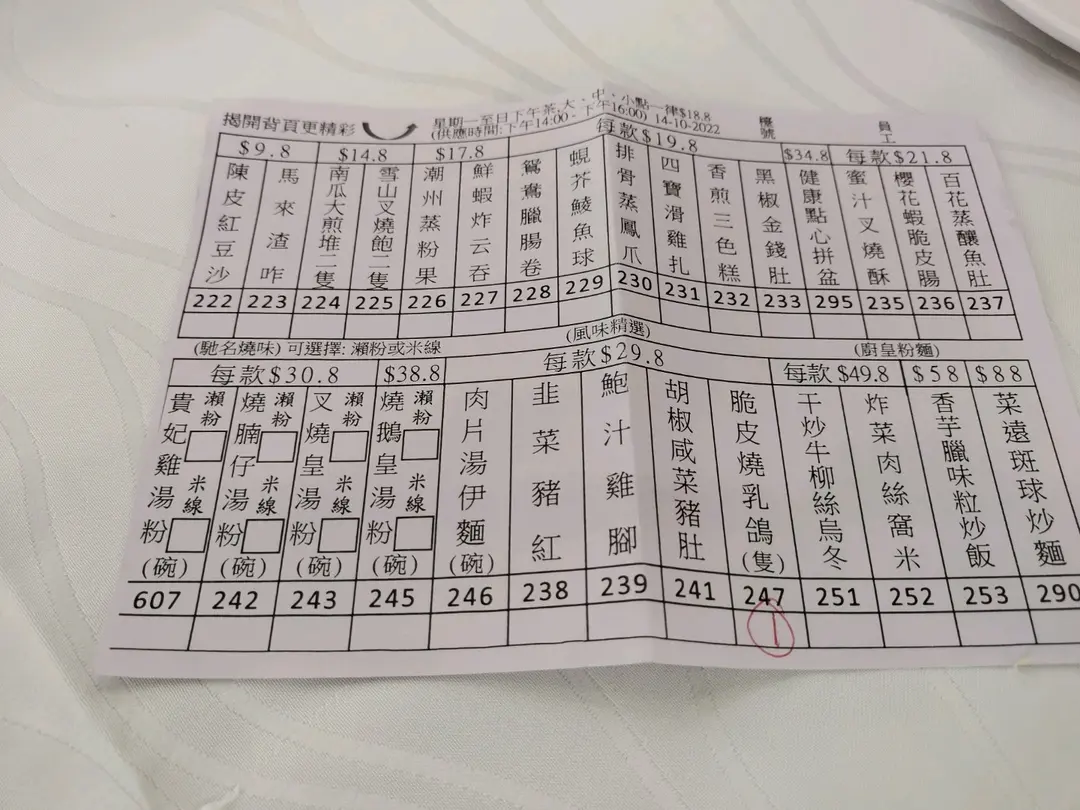 揭開背頁更精彩
星期一至日下午茶,大、中、小點一律$18.8
(供應時間:下午14:00 - 下午16:00) 14-10-2022
檯號
員工
$9.8
$14.8
$17.8
每款$19.8
$34.8
每款$21.8
陳皮紅豆沙
馬來渣咋
南瓜大煎堆二隻
雪山叉燒飽二隻
潮州蒸粉果
鮮蝦炸云吞
鴛鴦臘腸卷
蜆芥鯪魚球
排骨蒸鳳爪
四寶滑雞扎
香煎三色糕
黑椒金錢肚
健康點心拼盆
蜜汁叉燒酥
櫻花蝦脆皮腸
百花蒸釀魚肚
222 223 224 225 226 227 228 229 230 231 232 233 295 235 236 237
(馳名燒味) 可選擇: 瀨粉或米線
(風味精選)
(廚皇粉麵)
每款$30.8
$38.8
每款$29.8
每款$49.8
$58
$88
貴妃雞湯粉(碗)
瀨粉
米線
燒腩仔湯粉(碗)
瀨粉
米線
叉燒皇湯粉(碗)
瀨粉
米線
燒鵝皇湯粉(碗)
瀨粉
米線
肉片湯伊麵(碗)
韭菜豬紅
鮑汁雞腳
胡椒咸菜豬肚
脆皮燒乳鴿(隻)
干炒牛柳絲烏冬
炸菜肉絲窩米
香芋臘味粒炒飯
菜遠斑球炒麵
607 242 243 245 246 238 239 241 247 251 252 253 290
1